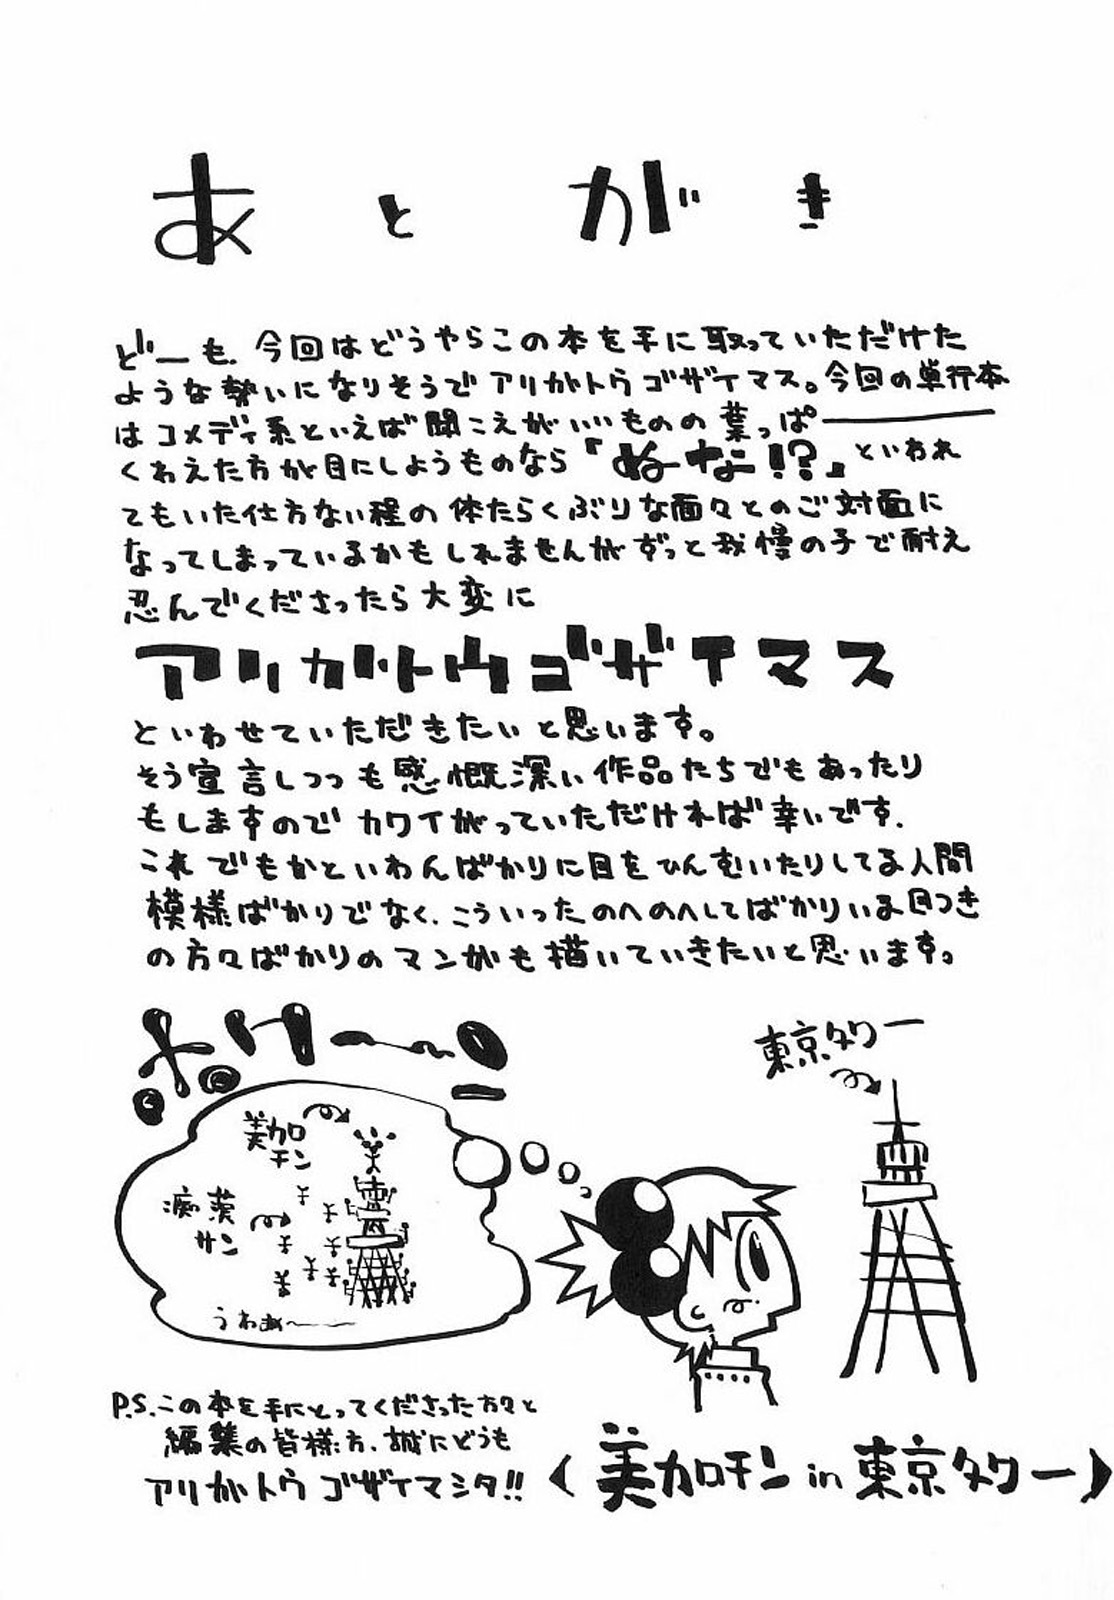 あとがき
どーも、今回はどうやらこの本を手に取っていただけた
ような勢いになりそうでアリガトウゴザイマス。今回の単行本
はコメディ系といえば聞こえがいいものの葉っぱ――
くわえた方が目にしようものなら『ぬーな!?』といわれ
てもいた仕方ない程の体たらくぶりな面々とのご対面に
なってしまっているかもしれませんがずっと我慢の子で耐え
忍んでくださったら大変に
アリガトウゴザイマス
といわせていただきたいと思います。
そう宣言しつつも感慨深い作品たちでもあったり
もしますのでカワイがっていただければ幸いです.
これでもかといわんばかりに目をひんむいたりしてる人間
模様ばかりでなく、こういったのへのへしてばかりいる目つき
の方々ばかりのマンガも描いていきたいと思います。
ホケーー
東京タワー
美カロチン
痴漢サン
うわぁ〜――
P.S.この本を手にとってくださった方々と
編集の皆様方、誠にどうも
アリガトウゴザイマシタ!!
〈美カロチン in 東京タワー〉